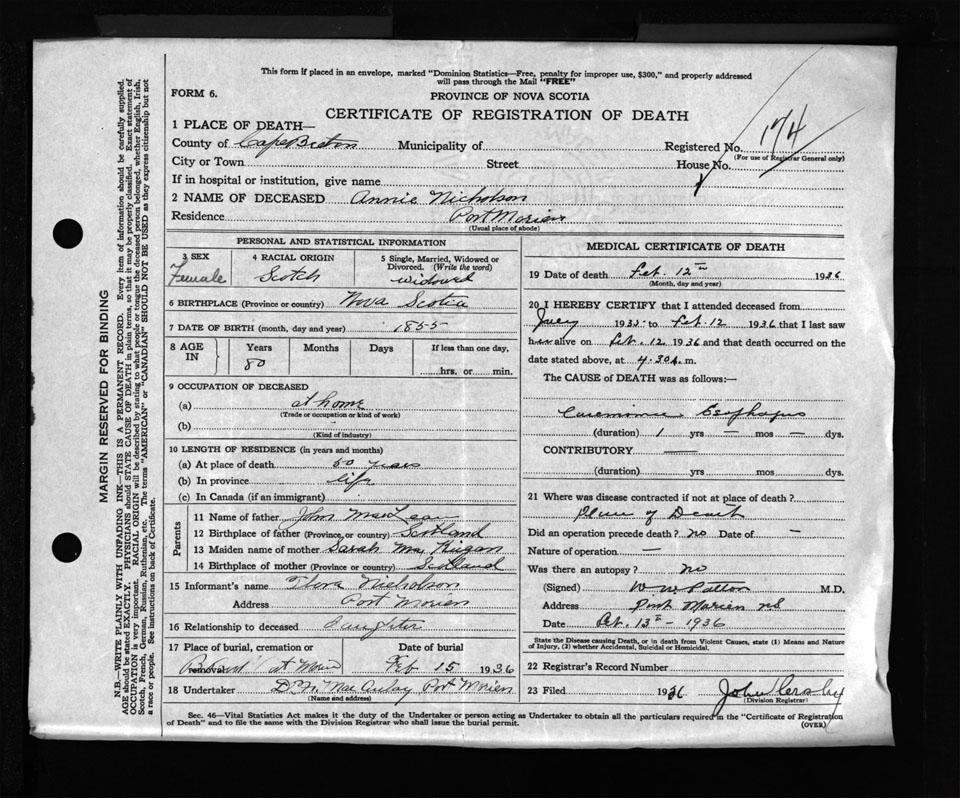 This form if placed in an envelope, marked "Dominion Statistics—Free, penalty for improper use, $300," and properly addressed
will pass through the Mail "FREE"
FORM 6.
PROVINCE OF NOVA SCOTIA
CERTIFICATE OF REGISTRATION OF DEATH
174
1 PLACE OF DEATH—
County of Cape Breton Municipality of Registered No.
(For use of Registrar General only)
City or Town Street House No.
If in hospital or institution, give name
2 NAME OF DECEASED Annie Nicholson
Residence Port Morien
(Usual place of abode)
PERSONAL AND STATISTICAL INFORMATION
3 SEX
Female
4 RACIAL ORIGIN
Scotch
5 Single, Married, Widowed or
Divorced. (Write the word)
widowed
6 BIRTHPLACE (Province or country) Nova Scotia
7 DATE OF BIRTH (month, day and year) 1855
8 AGE
IN
Years
80
Months
Days
If less than one day,
hrs. or min.
9 OCCUPATION OF DECEASED
(a) at home
(Trade or occupation or kind of work)
(b)
(Kind of industry)
10 LENGTH OF RESIDENCE (in years and months)
(a) At place of death 50 years
(b) In province life
(c) In Canada (if an immigrant)
Parents
11 Name of father John MacLean
12 Birthplace of father (Province or country) Scotland
13 Maiden name of mother Sarah
14 Birthplace of mother (Province or country) Scotland
15 Informant's name Nicholson
Address Port Morien
16 Relationship to deceased Daughter
17 Place of burial, cremation or
removal at
Date of burial
Feb 15 1936
18 Undertaker MacAulay Port Morien
(Name and address)
MEDICAL CERTIFICATE OF DEATH
19 Date of death Feb. 12th 1936
(Month, day and year)
20 I HEREBY CERTIFY that I attended deceased from
1935 to Feb. 12 1936 that I last saw
her alive on Feb. 12 1936 and that death occurred on the
date stated above, at 4.30 A. m.
The CAUSE of DEATH was as follows:—
Esophagus
(duration) 1 yrs — mos — dys.
CONTRIBUTORY —
(duration) yrs mos dys.
21 Where was disease contracted if not at place of death?
Place of Death
Did an operation precede death? no Date of —
Nature of operation —
Was there an autopsy? no
(Signed) Patton M.D.
Address Port Morien NS
Date Feb. 13th - 1936
State the Disease causing Death, or in death from Violent Causes, state (1) Means and Nature
of Injury, (2) whether Accidental, Suicidal or Homicidal.
22 Registrar's Record Number
23 Filed 1936 John
(Division Registrar)
Sec. 46—Vital Statistics Act makes it the duty of the Undertaker or person acting as Undertaker to obtain all the particulars required in the "Certificate of Registration
of Death" and to file the same with the Division Registrar who shall issue the burial permit.
(OVER)
MARGIN RESERVED FOR BINDING
N.B.—WRITE PLAINLY WITH UNFADING INK—THIS IS A PERMANENT RECORD. Every item of information should be carefully supplied.
AGE should be stated EXACTLY. PHYSICIANS should STATE CAUSE OF DEATH in plain terms, so that it may be properly classified. Exact statement of
OCCUPATION is very important. RACIAL ORIGIN will be described by stating to what people or tongue the deceased person belonged, whether English, Irish,
Scotch, French, German, Russian, Ruthenian, etc. The terms "AMERICAN" or "CANADIAN" SHOULD NOT BE USED as they express citizenship but not
a race or people. See instructions on back of Certificate.